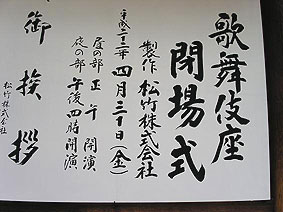 歌舞伎座
閉場式
製作 松竹株式会社
平成二十二年 四月三十日(金)
昼の部 正午 開演
夜の部 午後四時開演
御挨拶
松竹株式会社